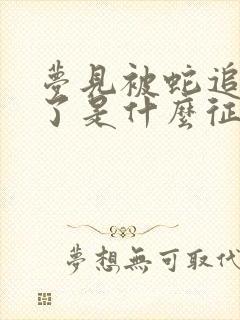 夢見被蛇追
了是什麼征
夢想無可取代